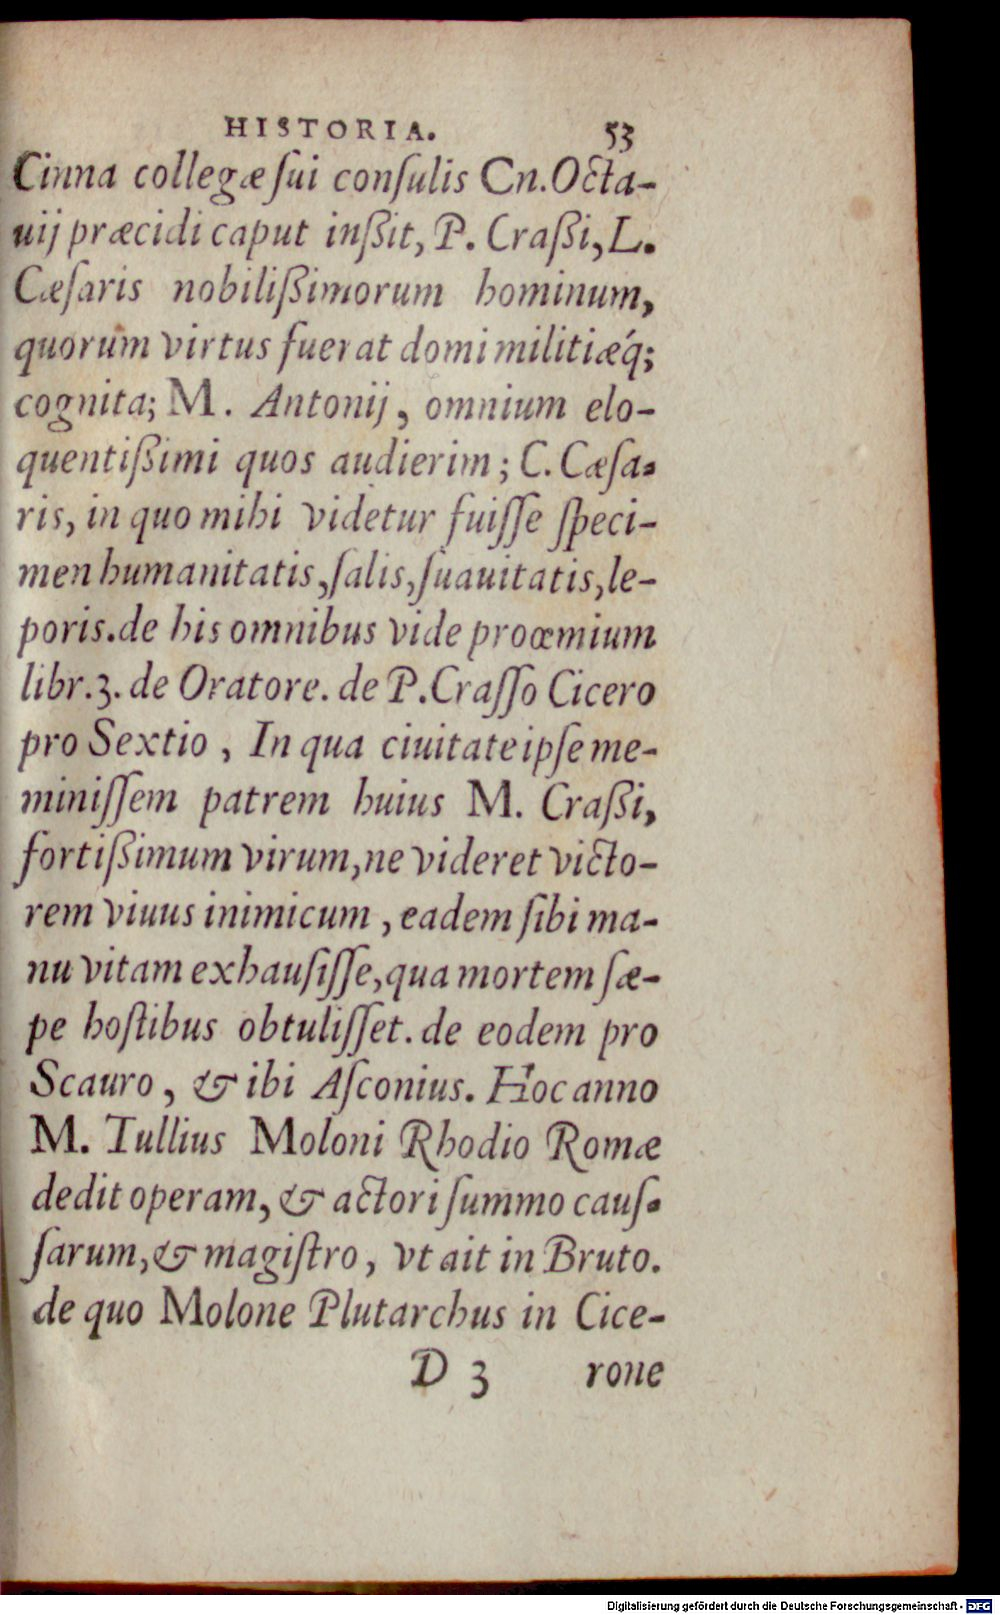 HISTORIA. 53
Cinna collegæ ſui conſulis Cn. Octa-
uij præcidi caput inſsit, P. Craſsi, L.
Cæſaris nobiliſsimorum hominum,
quorum virtus fuerat domi militiæq́;
cognita; M. Antonij, omnium elo-
quentiſsimi quos audierim; C. Cæſa-
ris, in quo mihi videtur fuiſſe ſpeci-
men humanitatis, ſalis, ſuauitatis, le-
poris. de his omnibus vide proœmium
libr. 3. de Oratore. de P. Craſſo Cicero
pro Sextio, In qua ciuitate ipſe me-
miniſſem patrem huius M. Craſsi,
fortiſsimum virum, ne videret victo-
rem viuus inimicum, eadem ſibi ma-
nu vitam exhauſiſſe, qua mortem ſæ-
pe hoſtibus obtuliſſet. de eodem pro
Scauro, & ibi Aſconius. Hoc anno
M. Tullius Moloni Rhodio Romæ
dedit operam, & actori ſummo cauſ-
ſarum, & magiſtro, vt ait in Bruto.
de quo Molone Plutarchus in Cice-
D 3 rone
Digitalisierung gefördert durch die Deutsche Forschungsgemeinschaft - DFG